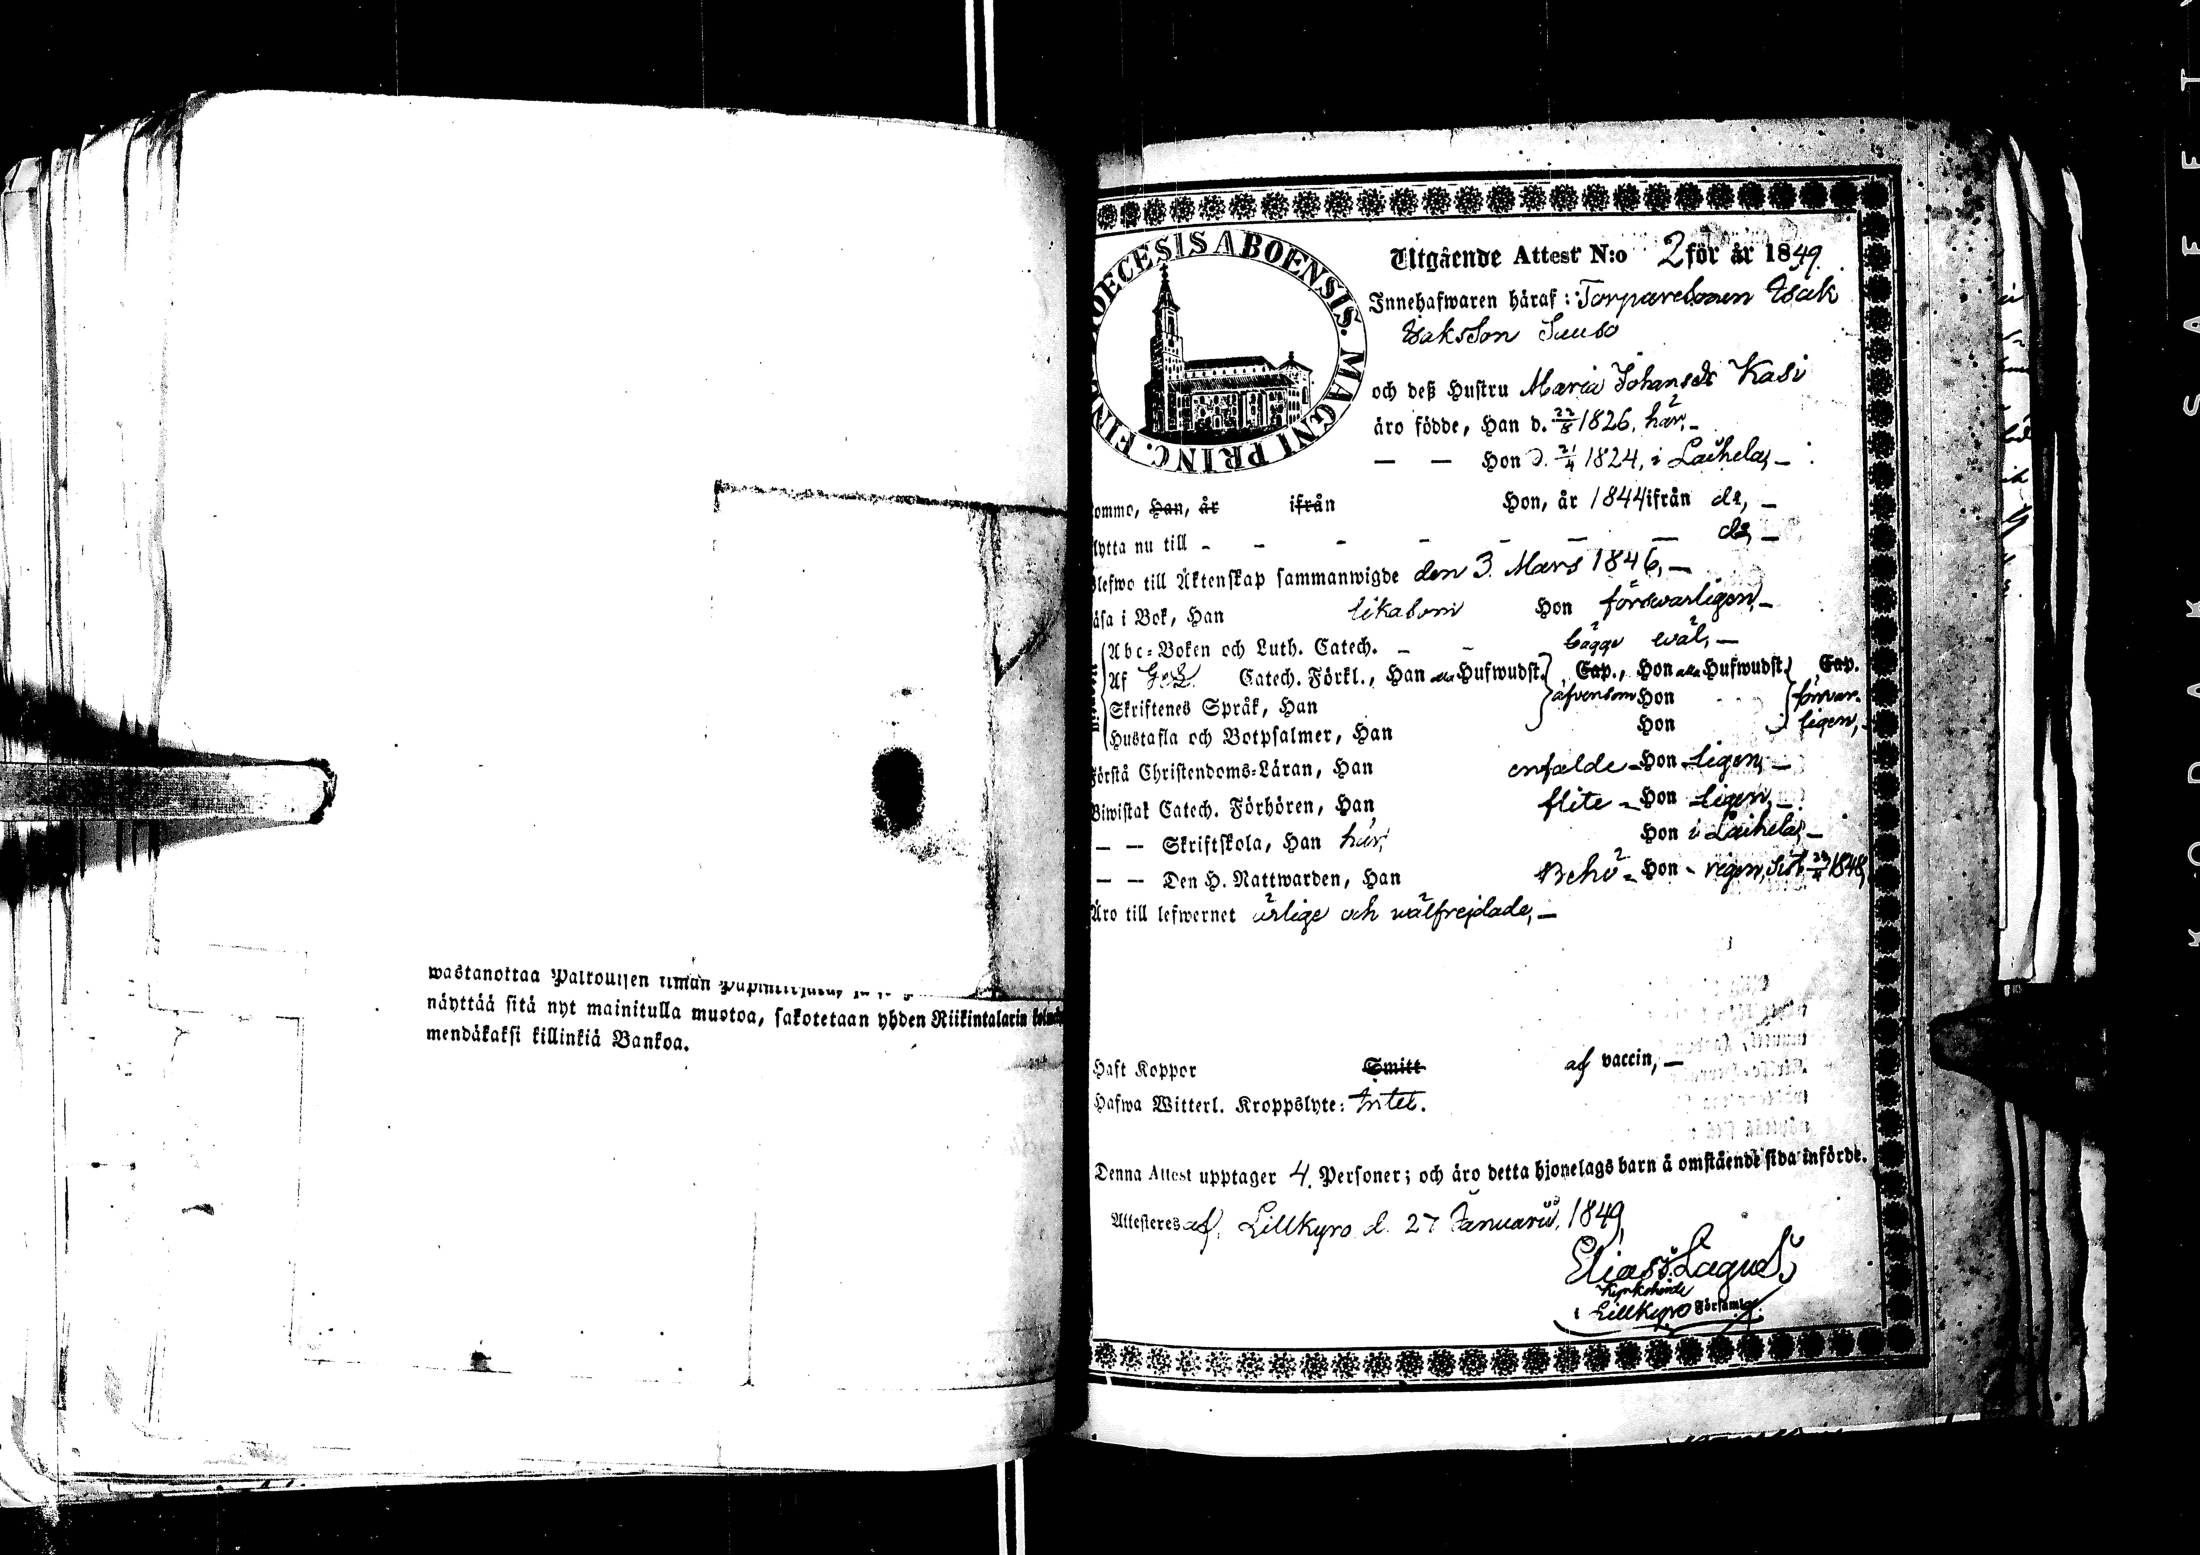 wastanottaa Patrouljen ilman
näyttää sitä nyt mainitulla muotoa, sakotetaan yhden Riikintalarin kolme
mendäkaksi killinkiä Bankoa.
OECESIS ABOENSIS. MAGNI PRINC. FIN
Utgående Attest N:o 2 för år 1849.
Innehafwaren häraf: Torparesonen Isak
Isaksson Suuso
och deß Hustru Maria Johansdr Kasi
äro födde, Han d. 22/8 1826, här, –
— — Hon d. 21/4 1824, i Laihela, –
ommo, Han, år ifrån Hon, år 1844 ifrån do, –
lytta nu till – – – – – – – do, –
lefwo till Äktenskap sammanwigde den 3. Mars 1846, –
äsa i Bok, Han likasom Hon förswarligen, –
Abc-Boken och Luth. Catech. – – bägge wäl, –
Af Catech. Förkl., Han alla Hufwudst. Cap., Hon alla Hufwudst. Cap.
Skriftenes Språk, Han äfvensom Hon försvar-
Hustafla och Botpsalmer, Han Hon ligen,
Förstå Christendoms-Läran, Han enfalde- Hon -ligen, –
Biwistat Catech. Förhören, Han flite- Hon -ligen, –
— — Skriftskola, Han här, Hon i Laihela, –
— — Den H. Nattwarden, Han Behö- Hon -rigen, sist 1848,
Äro till lefwernet ärlige och wälfrejdade, –
Haft Koppor Smitt af vaccin, –
Hafwa Witterl. Kroppslyte: Intet.
Denna Attest upptager 4. Personer; och äro detta hjonelags barn å omstående sida införde.
Attesteres af, Lillkyro d. 27 Januarii, 1849,
Elias Lagus,
Kyrkoherde
i Lillkyro Församlg.
KODAK SAFETY